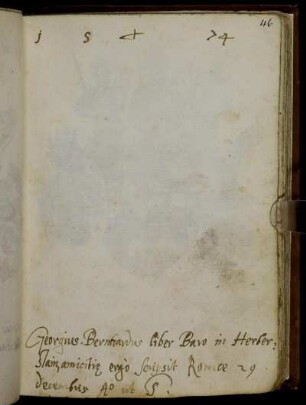 46
1 5 7 4
Georgius Bernhardus liber Baro in Herber:
stain amicitiæ ergo scripsit Romæ 29
decembris Aº ut S.